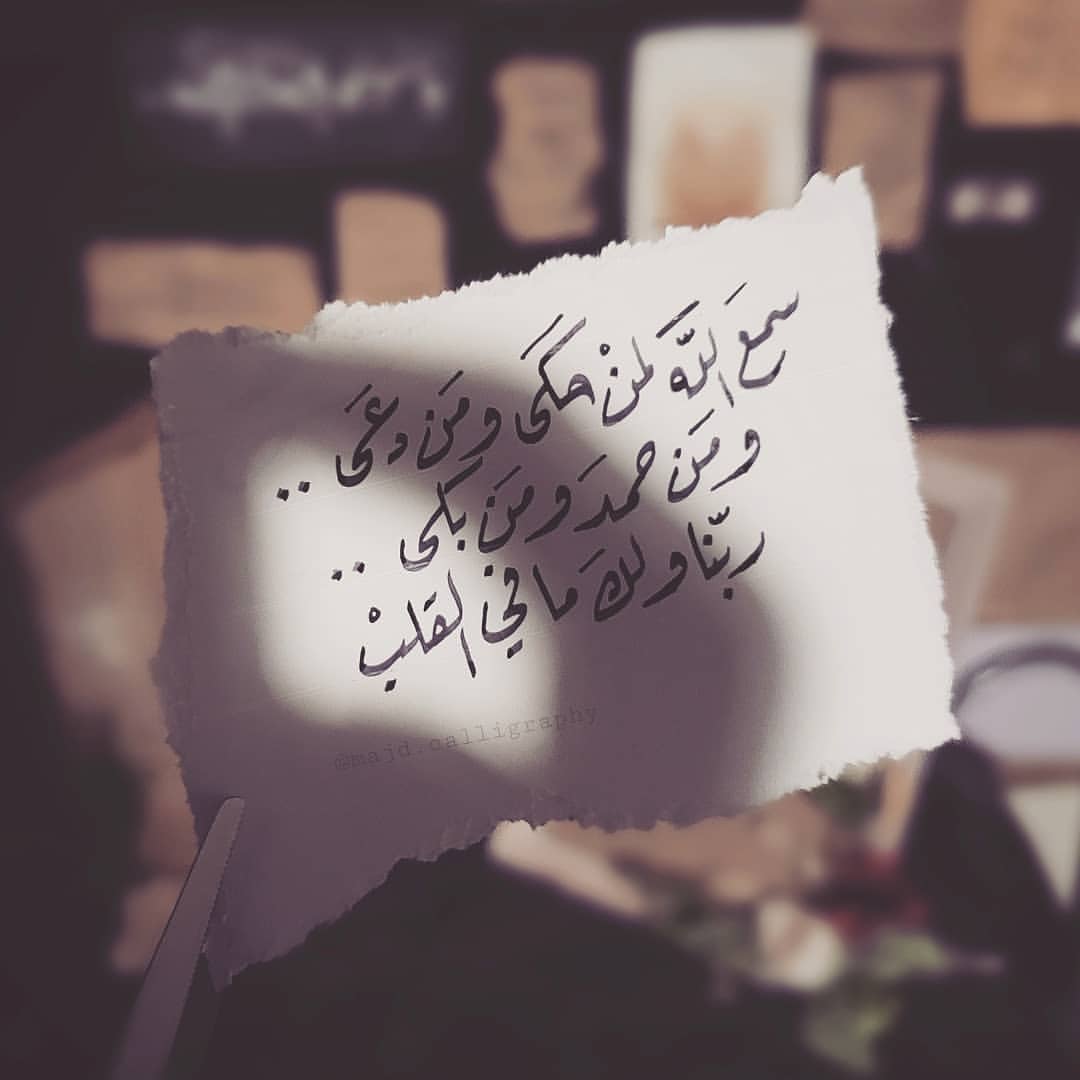 سمعَ اللهَّ لمنْ حكَى ومَن دعَى ..
ومَن حمدَ ومَن بكَى ..
ربّنا ولكَ ما في القلبْ
@majd.calligraphy